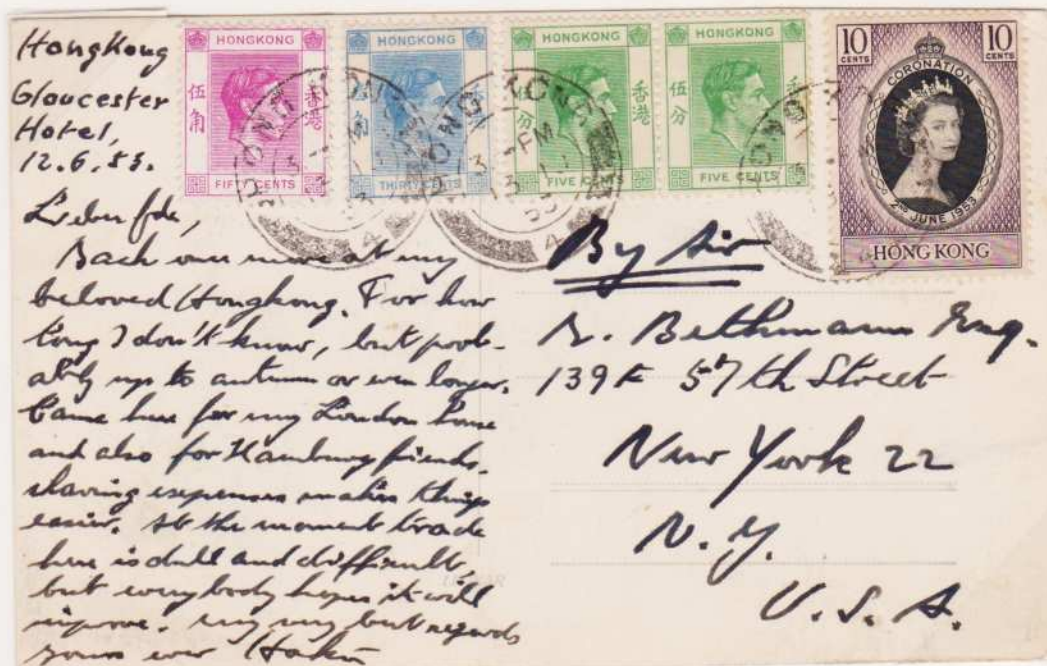 Hongkong
Gloucester
Hotel,
12.6.53.
Back once more at my
beloved Hongkong. For how
long I don't know, but prob-
ably up to autumn or even longer.
Came here for my London house
and also for Hamburg friends,
sharing expenses makes things
easier. At the moment trade
here is dull and difficult,
but everybody hopes it will
improve. my best regards
yours ever
HONGKONG
伍角
香港
FIFTY CENTS
HONGKONG
THIRTY CENTS
HONGKONG
伍分
香港
FIVE CENTS
HONGKONG
伍分
香港
FIVE CENTS
10 CENTS
10 CENTS
CORONATION
2ND JUNE 1953
HONG KONG
By Air
R. Bethmann Esq.
139 E 57th Street
New York 22
N.Y.
U.S.A.